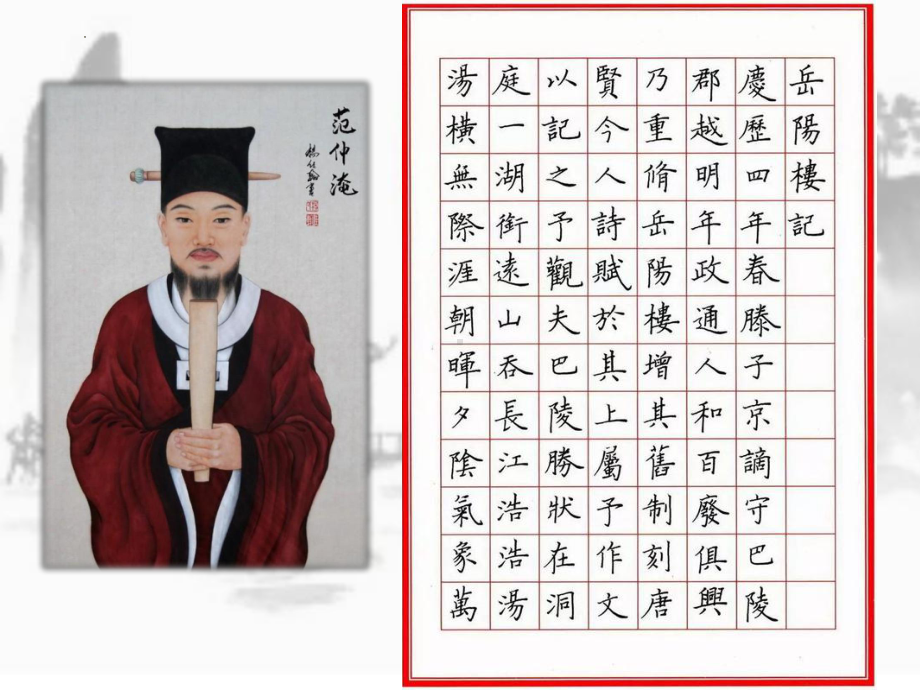 范仲淹
岳陽樓記
慶歷四年春滕子京謫守巴陵
郡越明年政通人和百廢俱興
乃重脩岳陽樓增其舊制刻唐
賢今人詩賦於其上屬予作文
以記之予觀夫巴陵勝狀在洞
庭一湖銜遠山吞長江浩浩湯
湯橫無際涯朝暉夕陰氣象萬